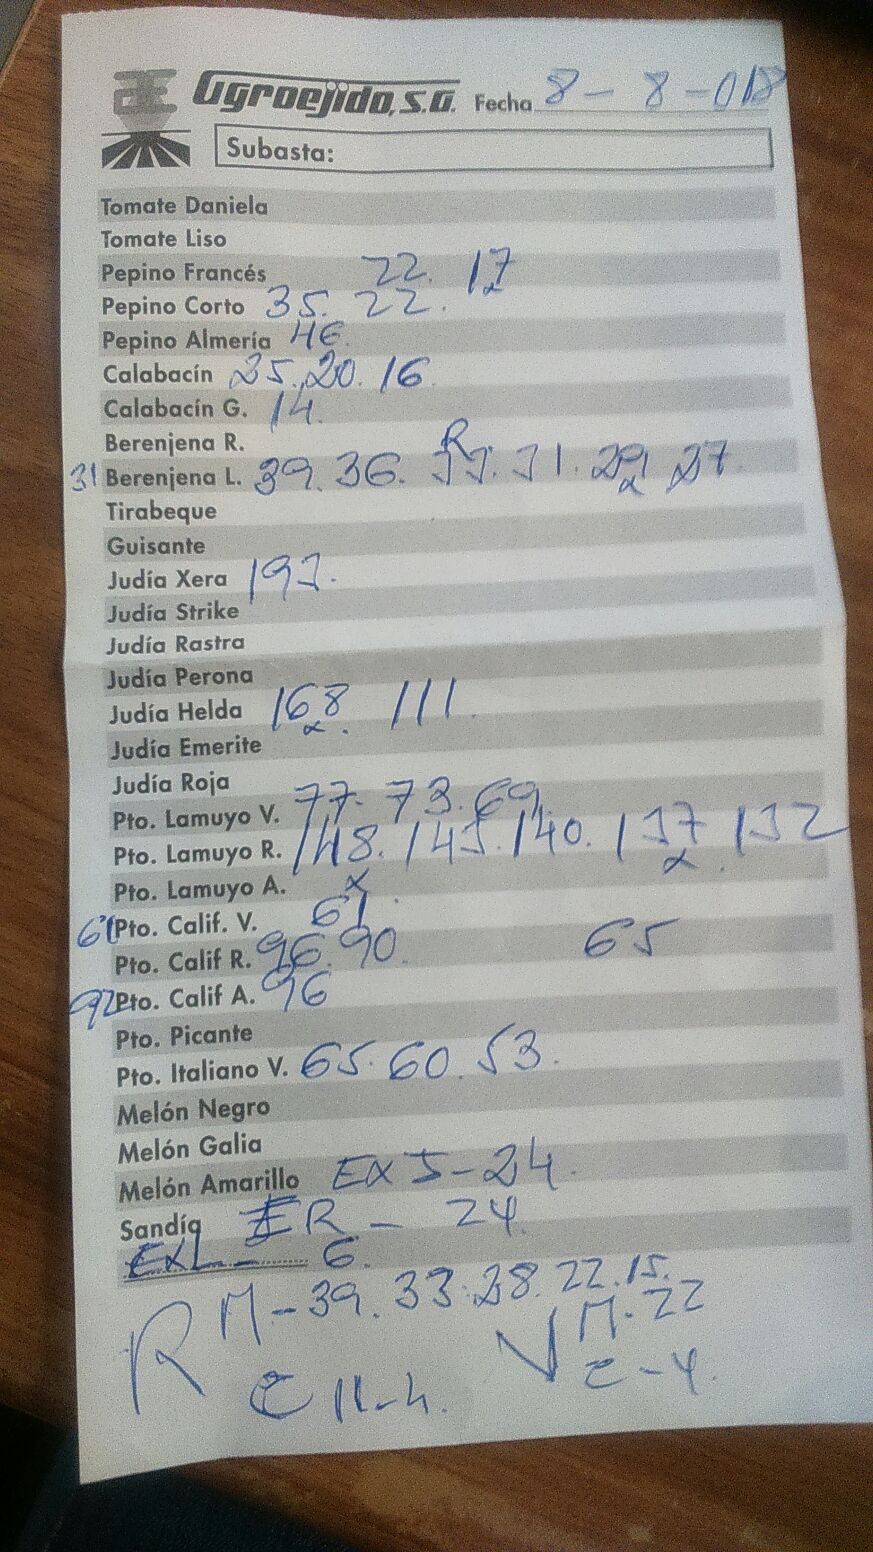 Agroejido, S.A. Fecha 8 - 8 - 018
Subasta:
Tomate Daniela
Tomate Liso
Pepino Francés 22. 17
Pepino Corto 35. 22.
Pepino Almería 46.
Calabacín 25. 20. 16
Calabacín G. 14
Berenjena R. R
31 Berenjena L. 39. 36. 33. 31. 29 27.
Tirabeque
Guisante
Judía Xera 193.
Judía Strike
Judía Rastra
Judía Perona
Judía Helda 168. 111.
Judía Emerite
Judía Roja
Pto. Lamuyo V. 77. 73. 69.
Pto. Lamuyo R. 148. 143. 140. 137. 132
Pto. Lamuyo A.
61 Pto. Calif. V. 61.
Pto. Calif R. 96. 90. 65
92 Pto. Calif A. 96
Pto. Picante
Pto. Italiano V. 65. 60. 53.
Melón Negro
Melón Galia
Melón Amarillo EX 5 - 24.
Sandía ER - 24.
EXL - 6.
R M - 39. 33. 28. 22. 15.
V M - 22
C 11-4.
C - 4.